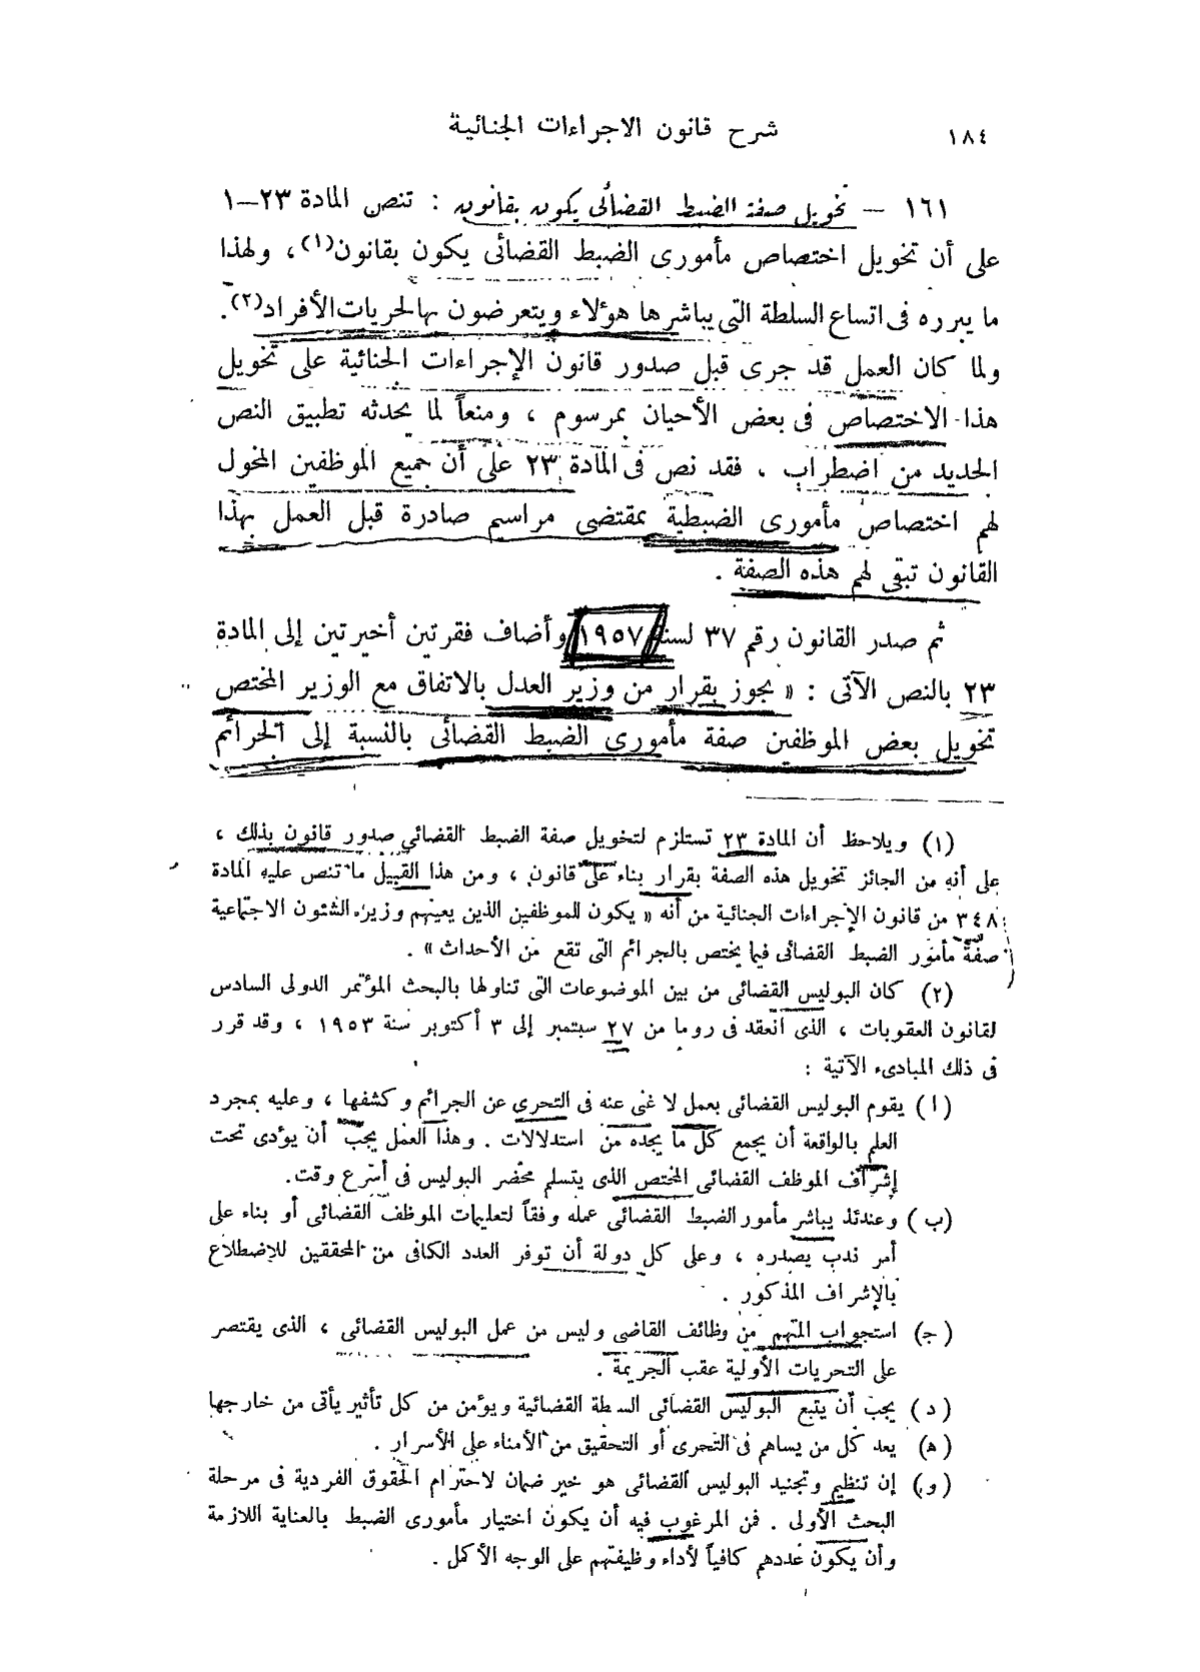 ١٨٤
شرح قانون الاجراءات الجنائية
١٦١ — تخويل صفة الضبط القضائى يكون بقانون : تنص المادة ٢٣—١
على أن تخويل اختصاص مأمورى الضبط القضائى يكون بقانون(١) ، ولهذا
ما يبرره فى اتساع السلطة التى يباشرها هؤلاء ويتعرضون بها لحريات الأفراد(٢).
ولما كان العمل قد جرى قبل صدور قانون الإجراءات الجنائية على تخويل
هذا الاختصاص فى بعض الأحيان بمرسوم ، ومنعاً لما يحدثه تطبيق النص
الجديد من اضطراب ، فقد نص فى المادة ٢٣ على أن جميع الموظفين المخول
لهم اختصاص مأمورى الضبطية بمقتضى مراسيم صادرة قبل العمل بهذا
القانون تبقى لهم هذه الصفة .
ثم صدر القانون رقم ٣٧ لسنة ١٩٥٧ وأضاف فقرتين أخيرتين إلى المادة
٢٣ بالنص الآتى : « يجوز بقرار من وزير العدل بالاتفاق مع الوزير المختص
تخويل بعض الموظفين صفة مأمورى الضبط القضائى بالنسبة إلى الجرائم
(١) ويلاحظ أن المادة ٢٣ تستلزم لتخويل صفة الضبط القضائى صدور قانون بذلك ،
على أنه من الجائز تخويل هذه الصفة بقرار بناء على قانون ، ومن هذا القبيل ما تنص عليه المادة
٣٤٨ من قانون الإجراءات الجنائية من أنه « يكون للموظفين الذين يعينهم وزير الشئون الاجتماعية
صفة مأمور الضبط القضائى فيما يختص بالجرائم التى تقع من الأحداث » .
(٢) كان البوليس القضائى من بين الموضوعات التى تناولها بالبحث المؤتمر الدولى السادس
لقانون العقوبات ، الذى انعقد فى روما من ٢٧ سبتمبر إلى ٣ أكتوبر سنة ١٩٥٣ ، وقد قرر
فى ذلك المبادىء الآتية :
(ا) يقوم البوليس القضائى بعمل لا غنى عنه فى التحرى عن الجرائم وكشفها ، وعليه بمجرد
العلم بالواقعة أن يجمع كل ما يجده من استدلالات . وهذا العمل يجب أن يؤدى تحت
إشراف الموظف القضائى المختص الذى يتسلم محضر البوليس فى أسرع وقت.
(ب) وعندئذ يباشر مأمور الضبط القضائى عمله وفقاً لتعليمات الموظف القضائى أو بناء على
أمر ندب يصدره ، وعلى كل دولة أن توفر العدد الكافى من المحققين للإضطلاع
بالإشراف المذكور .
(ج) استجواب المتهم من وظائف القاضى وليس من عمل البوليس القضائى ، الذى يقتصر
على التحريات الأولية عقب الجريمة .
(د) يجب أن يتبع البوليس القضائى السلطة القضائية ويؤمن من كل تأثير يأتى من خارجها
(ه) يعد كل من يساهم فى التحرى أو التحقيق من الأمناء على الأسرار .
(و) إن تنظيم وتجنيد البوليس القضائى هو خير ضمان لاحترام الحقوق الفردية فى مرحلة
البحث الأولى . فمن المرغوب فيه أن يكون اختيار مأمورى الضبط بالعناية اللازمة
وأن يكون عددهم كافياً لأداء وظيفتهم على الوجه الأكمل .